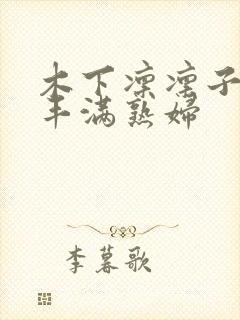 木下凛凛子
丰满熟婦
李暮歌